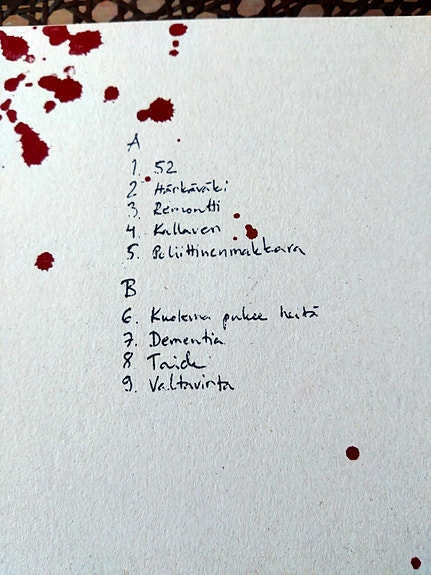 A
1. 52
2 Härkäväki
3. Remontti
4. Kallaven
5. Poliittinenmakkara
B
6. Kuolema pukee heitä
7. Dementia
8 Taide
9. Valtavirta